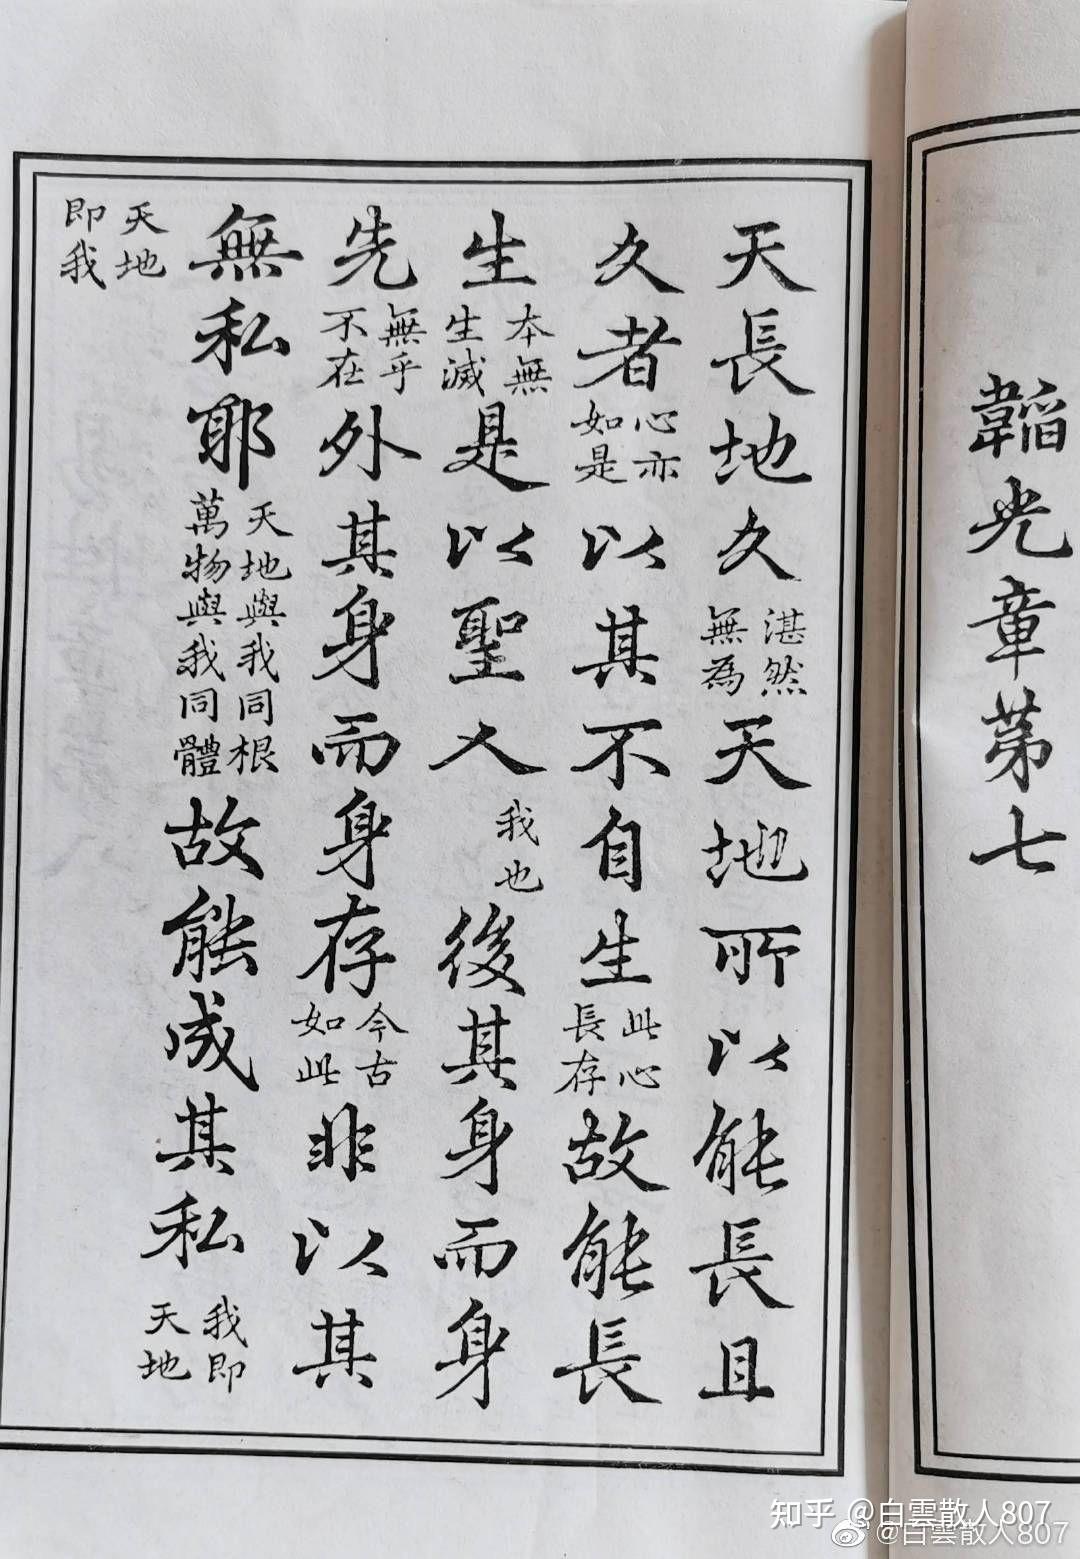 韜光章第七
天長地久湛然無為天地所以能長且
久者心亦如是以其不自生此心長存故能長
生本無生滅是以聖人我也後其身而身
先無乎不在外其身而身存今古如此非以其
無私耶天地與我同根萬物與我同體故能成其私我即天地
天地即我
知乎 @白雲散人807
@白雲散人807